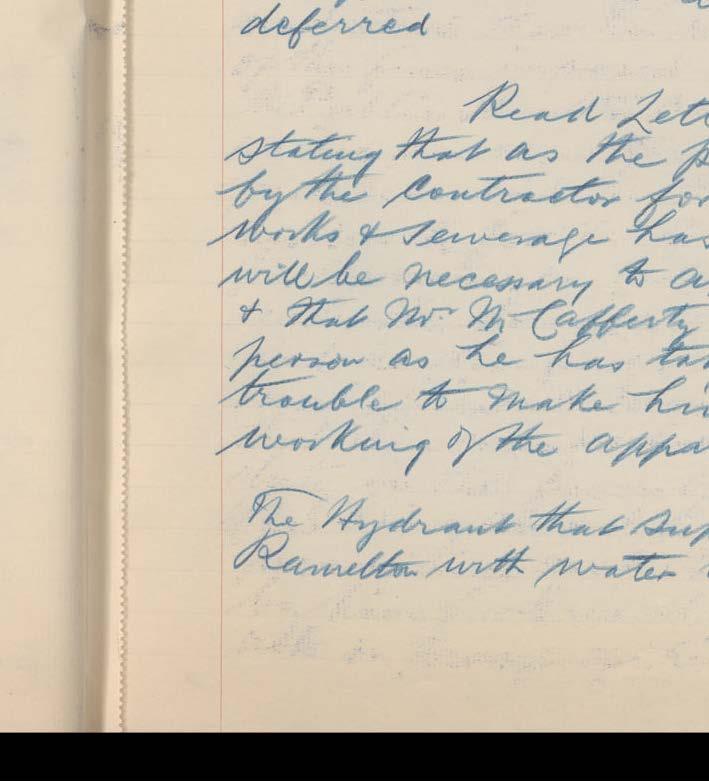 deferred
Read Lett
stating that as the p
by the Contractor for
works & Sewerage has
will be necessary to a
& that Mr McCafferty
person as he has tak
trouble to make hi
working of the appa
The Hydrant that sup
Ramelton with water